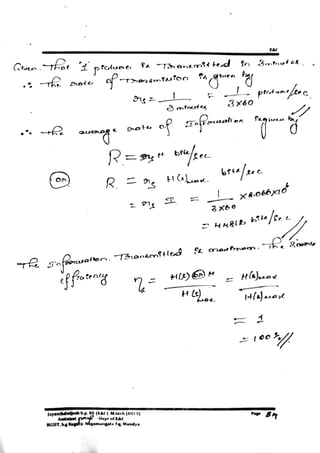 E&C
Given that '1' picture is Transmitted in 3 minutes.
∴ The rate of Transmission is given by
r_s = 1 / 3 minutes = 1 / 3×60 picture/sec
∴ The average rate of Information is given by
R = r_s H bits/sec
(or) R = r_s H(s)max. bits/sec
= r_s I = 1 / 3×60 × 8.066×10^6
= 44812 bits/sec //
The Information Transmitted is maximum. The Source
efficiency η = H(s) (or) H / H(s)max = H(s)max / H(s)max
= 1
= 100% //
Page
BGSIT, Nagamangala Tq, Mandya